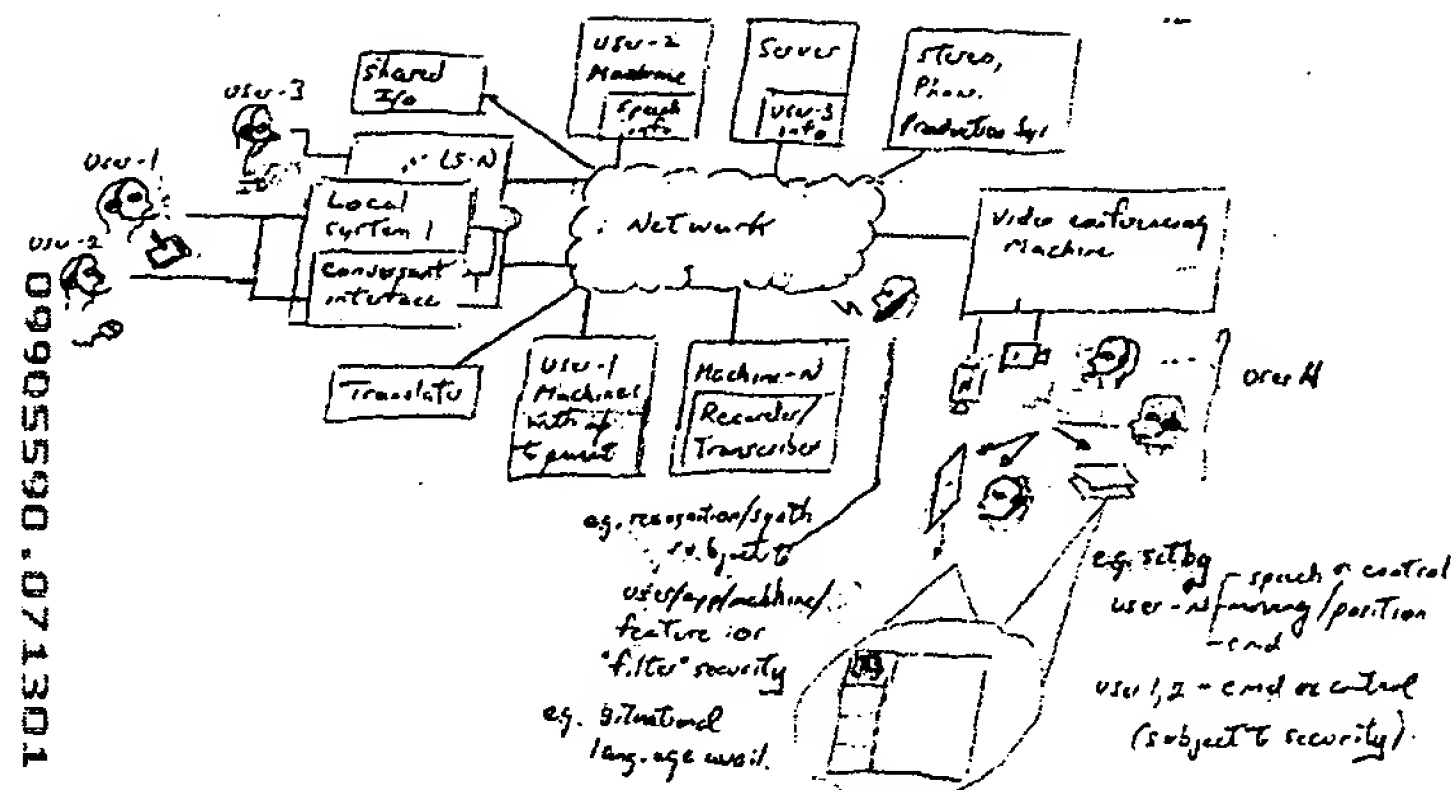 Shared
I/o
User-2
Machine
Speech
info
Server
User-3
info
Stereo,
Phone.
Production Sys
User-3
... LS-N
User-1
Local
System 1
User-2
Conversant
interface
Network
Video conferencing
Machine
...
Translate
User-1
Machines
with ap
to permit
Machine-N
Recorder/
Transcriber
N
...
User N
e.g. recognition/synth
subject to
user/app/machine/
feature ior
"filter" security
e.g. situational
language avail.
e.g. set by
speech or control
user-N moving/position
cmd
User 1,2 - cmd or control
(subject to security).
09905590.071301